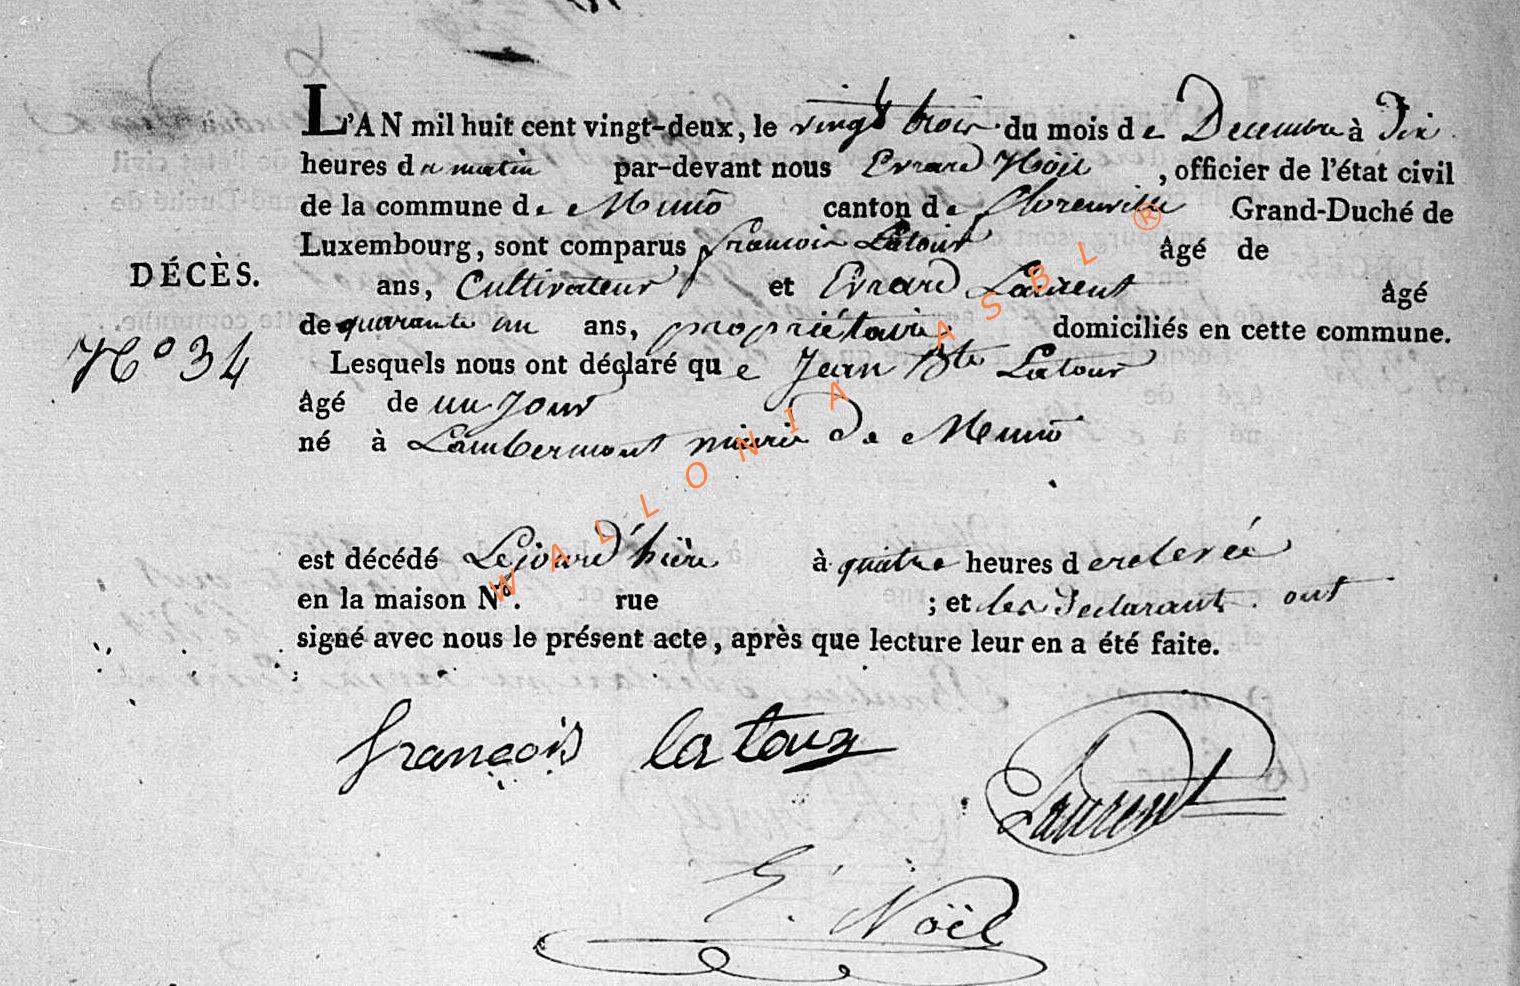 L'AN mil huit cent vingt-deux, le vingt trois du mois de Decembre à dix
heures du matin par-devant nous Evrard Noël, officier de l'état civil
de la commune de Muno canton de Florenville Grand-Duché de
Luxembourg, sont comparus francois Latour âgé de
DÉCÈS.
ans, Cultivateur et Evrard Laurent âgé
de quarante un ans, propriétaire domiciliés en cette commune.
N° 34
Lesquels nous ont déclaré que Jean Bte Latour
âgé de un Jour
né à Lambermont mairie de Muno
est décédé Le jour d'hière à quatre heures de relevée
en la maison No. rue ; et les declarants ont
signé avec nous le présent acte, après que lecture leur en a été faite.
francois latour
Laurent
E. Noël
WALLONIA ASBL ®